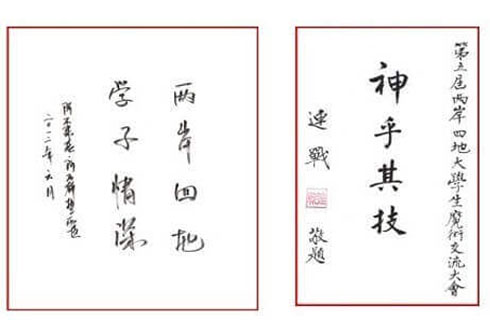 两岸四地
学子情深
二〇一二年六月
第五屆两岸四地大學生魔術交流大會
神乎其技
連戰
敬題